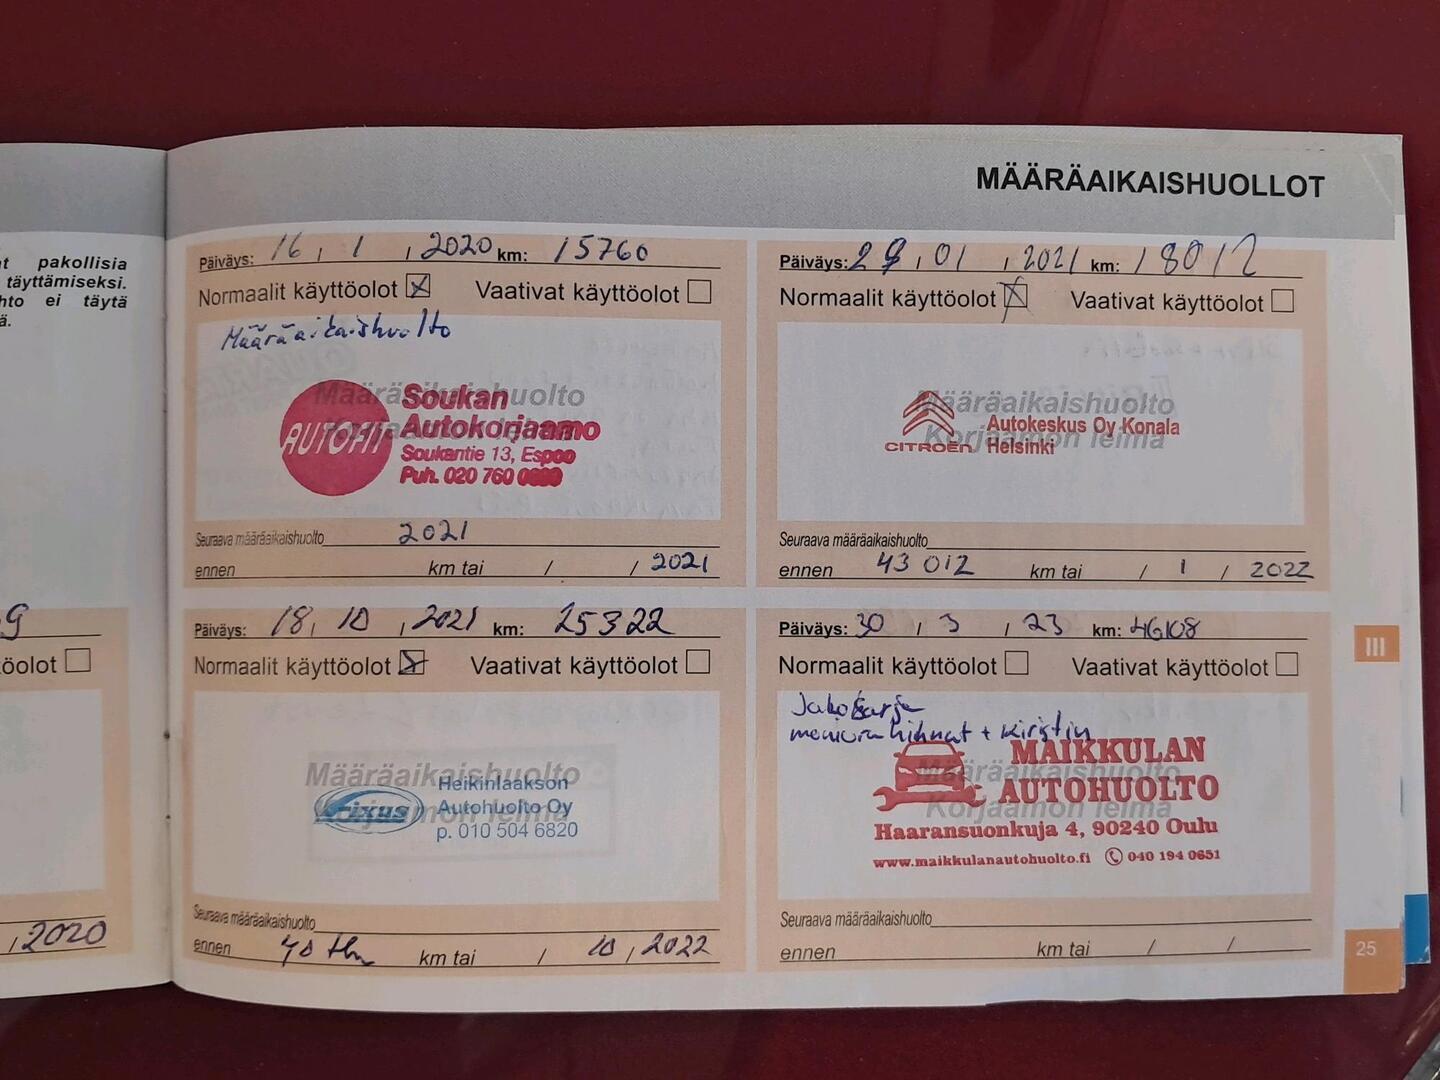 MÄÄRÄAIKAISHUOLLOT
t pakollisia
täyttämiseksi.
hto ei täytä
ä.
9
öolot
, 2020
Päiväys: 16 / 1 / 2020 km: 15760
Normaalit käyttöolot Vaativat käyttöolot
Määräaikaishuolto
Määräaikaishuolto
Korjaamon leima
AUTOFIT
Soukan
Autokorjaamo
Soukantie 13, Espoo
Puh. 020 760
Seuraava määräaikaishuolto 2021
ennen km tai / / 2021
Päiväys: 29 / 01 / 2021 km: 18012
Normaalit käyttöolot Vaativat käyttöolot
Määräaikaishuolto
Korjaamon leima
CITROËN
Autokeskus Oy Konala
Helsinki
Seuraava määräaikaishuolto
ennen 43 012 km tai / 1 / 2022
Päiväys: 18 / 10 / 2021 km: 25322
Normaalit käyttöolot Vaativat käyttöolot
Määräaikaishuolto
Korjaamon leima
Fixus
Heikinlaakson
Autohuolto Oy
p. 010 504 6820
Seuraava määräaikaishuolto
ennen 40 tkm km tai / 10 / 2022
Päiväys: 30 / 3 / 23 km: 46108
Normaalit käyttöolot Vaativat käyttöolot
Jakosarja
hihnat + kiristin
Määräaikaishuolto
Korjaamon leima
MAIKKULAN
AUTOHUOLTO
Haaransuonkuja 4, 90240 Oulu
www.maikkulanautohuolto.fi 040 194 0651
Seuraava määräaikaishuolto
ennen km tai / /
III
25